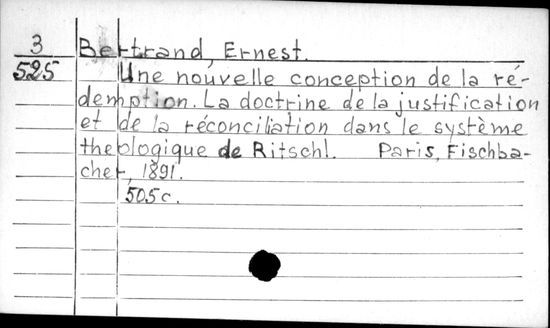 3 Bertrand, Ernest.
525 Une nouvelle conception de la ré-
demption. La doctrine de la justification
et de la réconciliation dans le système
theologique de Ritschl. Paris, Fischba-
cher, 1891.
505 c.